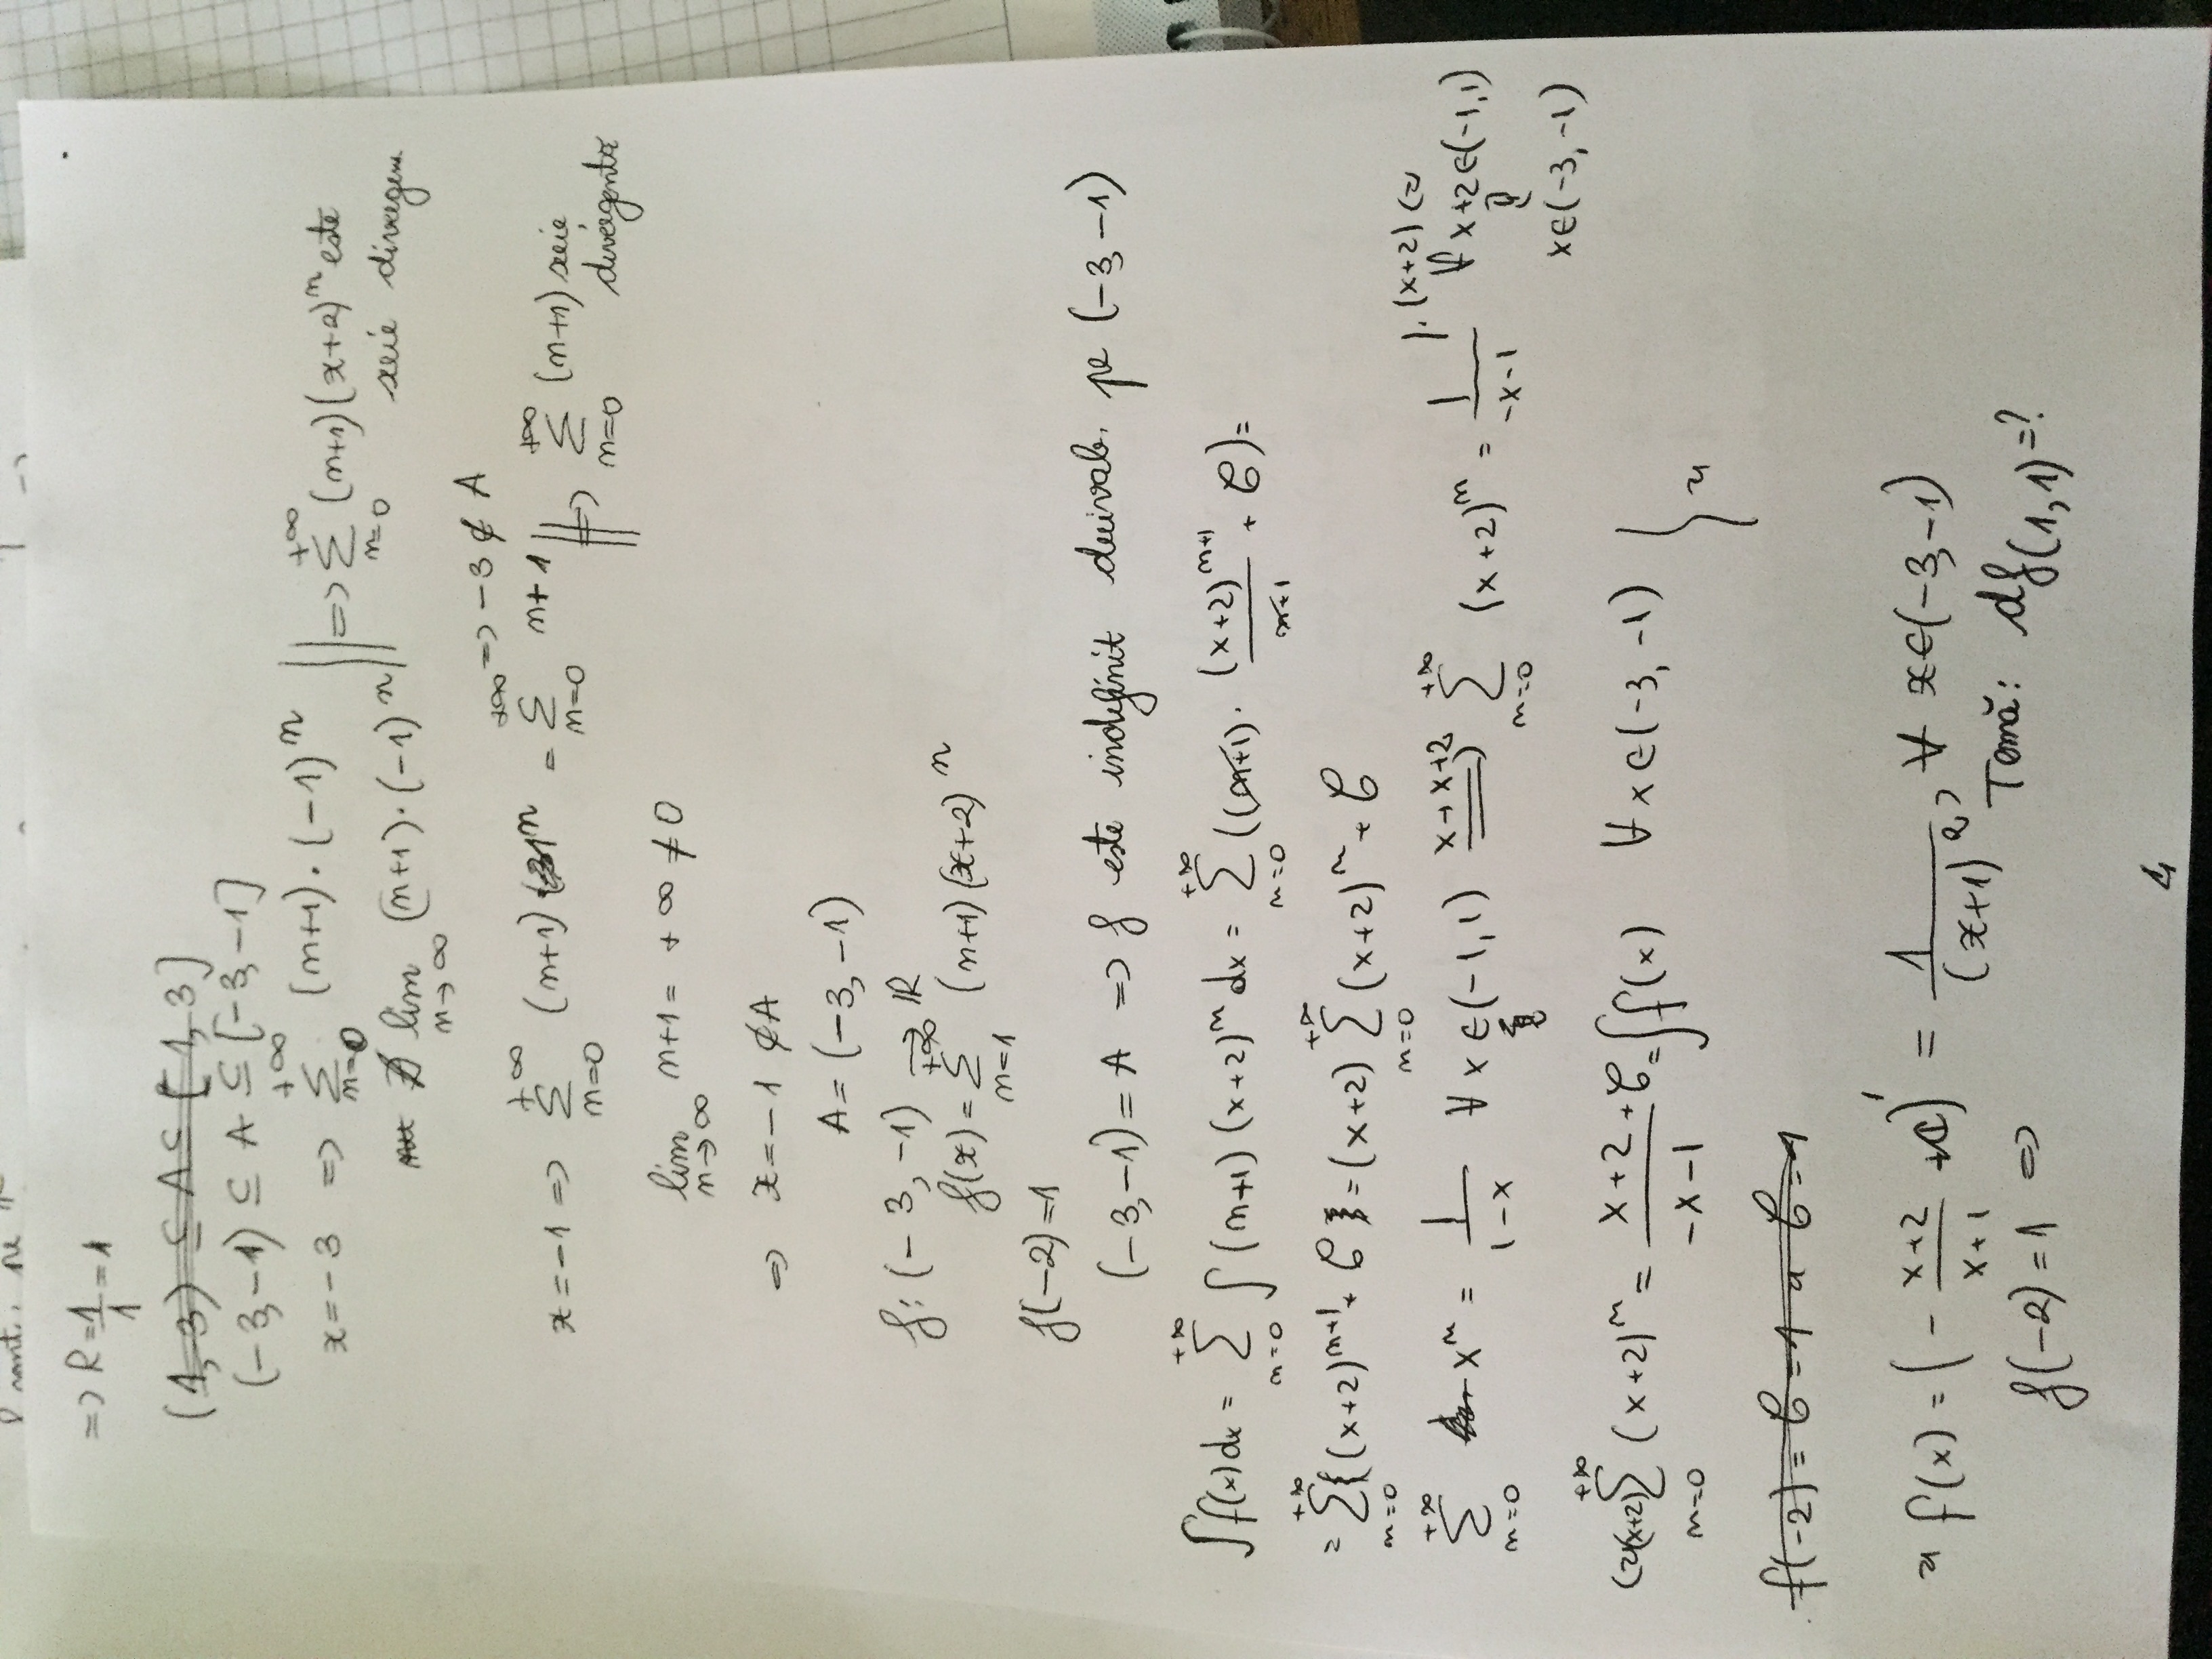 => R = 1/1 = 1
(1, 3) ⊆ A ⊆ [1, 3]
(-3, -1) ⊆ A ⊆ [-3, -1]
x = -3 => +∞ Σ n=0 (n+1)·(-1)^n || => +∞ Σ n=0 (n+1)(x+2)^n este
∄ lim n→∞ (n+1)·(-1)^n serie divergen.
=> -3 ∉ A
x = -1 => +∞ Σ n=0 (n+1) 1^n = +∞ Σ n=0 n+1 || => +∞ Σ n=0 (n+1) serie
divergentă
lim n→∞ n+1 = +∞ ≠ 0
=> x = -1 ∉ A
A = (-3, -1)
f: (-3, -1) → ℝ
f(x) = +∞ Σ n=1 (n+1)(x+2)^n
f(-2) = 1
(-3, -1) = A => f este indefinit derivab. pe (-3, -1)
∫f(x)dx = +∞ Σ n=0 ∫(n+1)(x+2)^n dx = +∞ Σ n=0 ((n+1)· (x+2)^(n+1)/(n+1) + C) =
= +∞ Σ n=0 (x+2)^(n+1) + C = (x+2) +∞ Σ n=0 (x+2)^n + C
+∞ Σ n=0 x^n = 1/(1-x) ∀ x ∈ (-1, 1) x→x+2 => +∞ Σ n=0 (x+2)^n = 1/(-x-1) |·(x+2) (=> ∀ x+2 ∈ (-1, 1)
x ∈ (-3, -1)
(=> (x+2) +∞ Σ n=0 (x+2)^n = (x+2)/(-x-1) + C = ∫f(x) ∀ x ∈ (-3, -1) } =>
f(-2) = C = 1 => C = 1
=> f(x) = (- (x+2)/(x+1) + C)' = 1/(x+1)^2, ∀ x ∈ (-3, -1)
f(-2) = 1 =>
Temă: df(1, 1) = ?
4